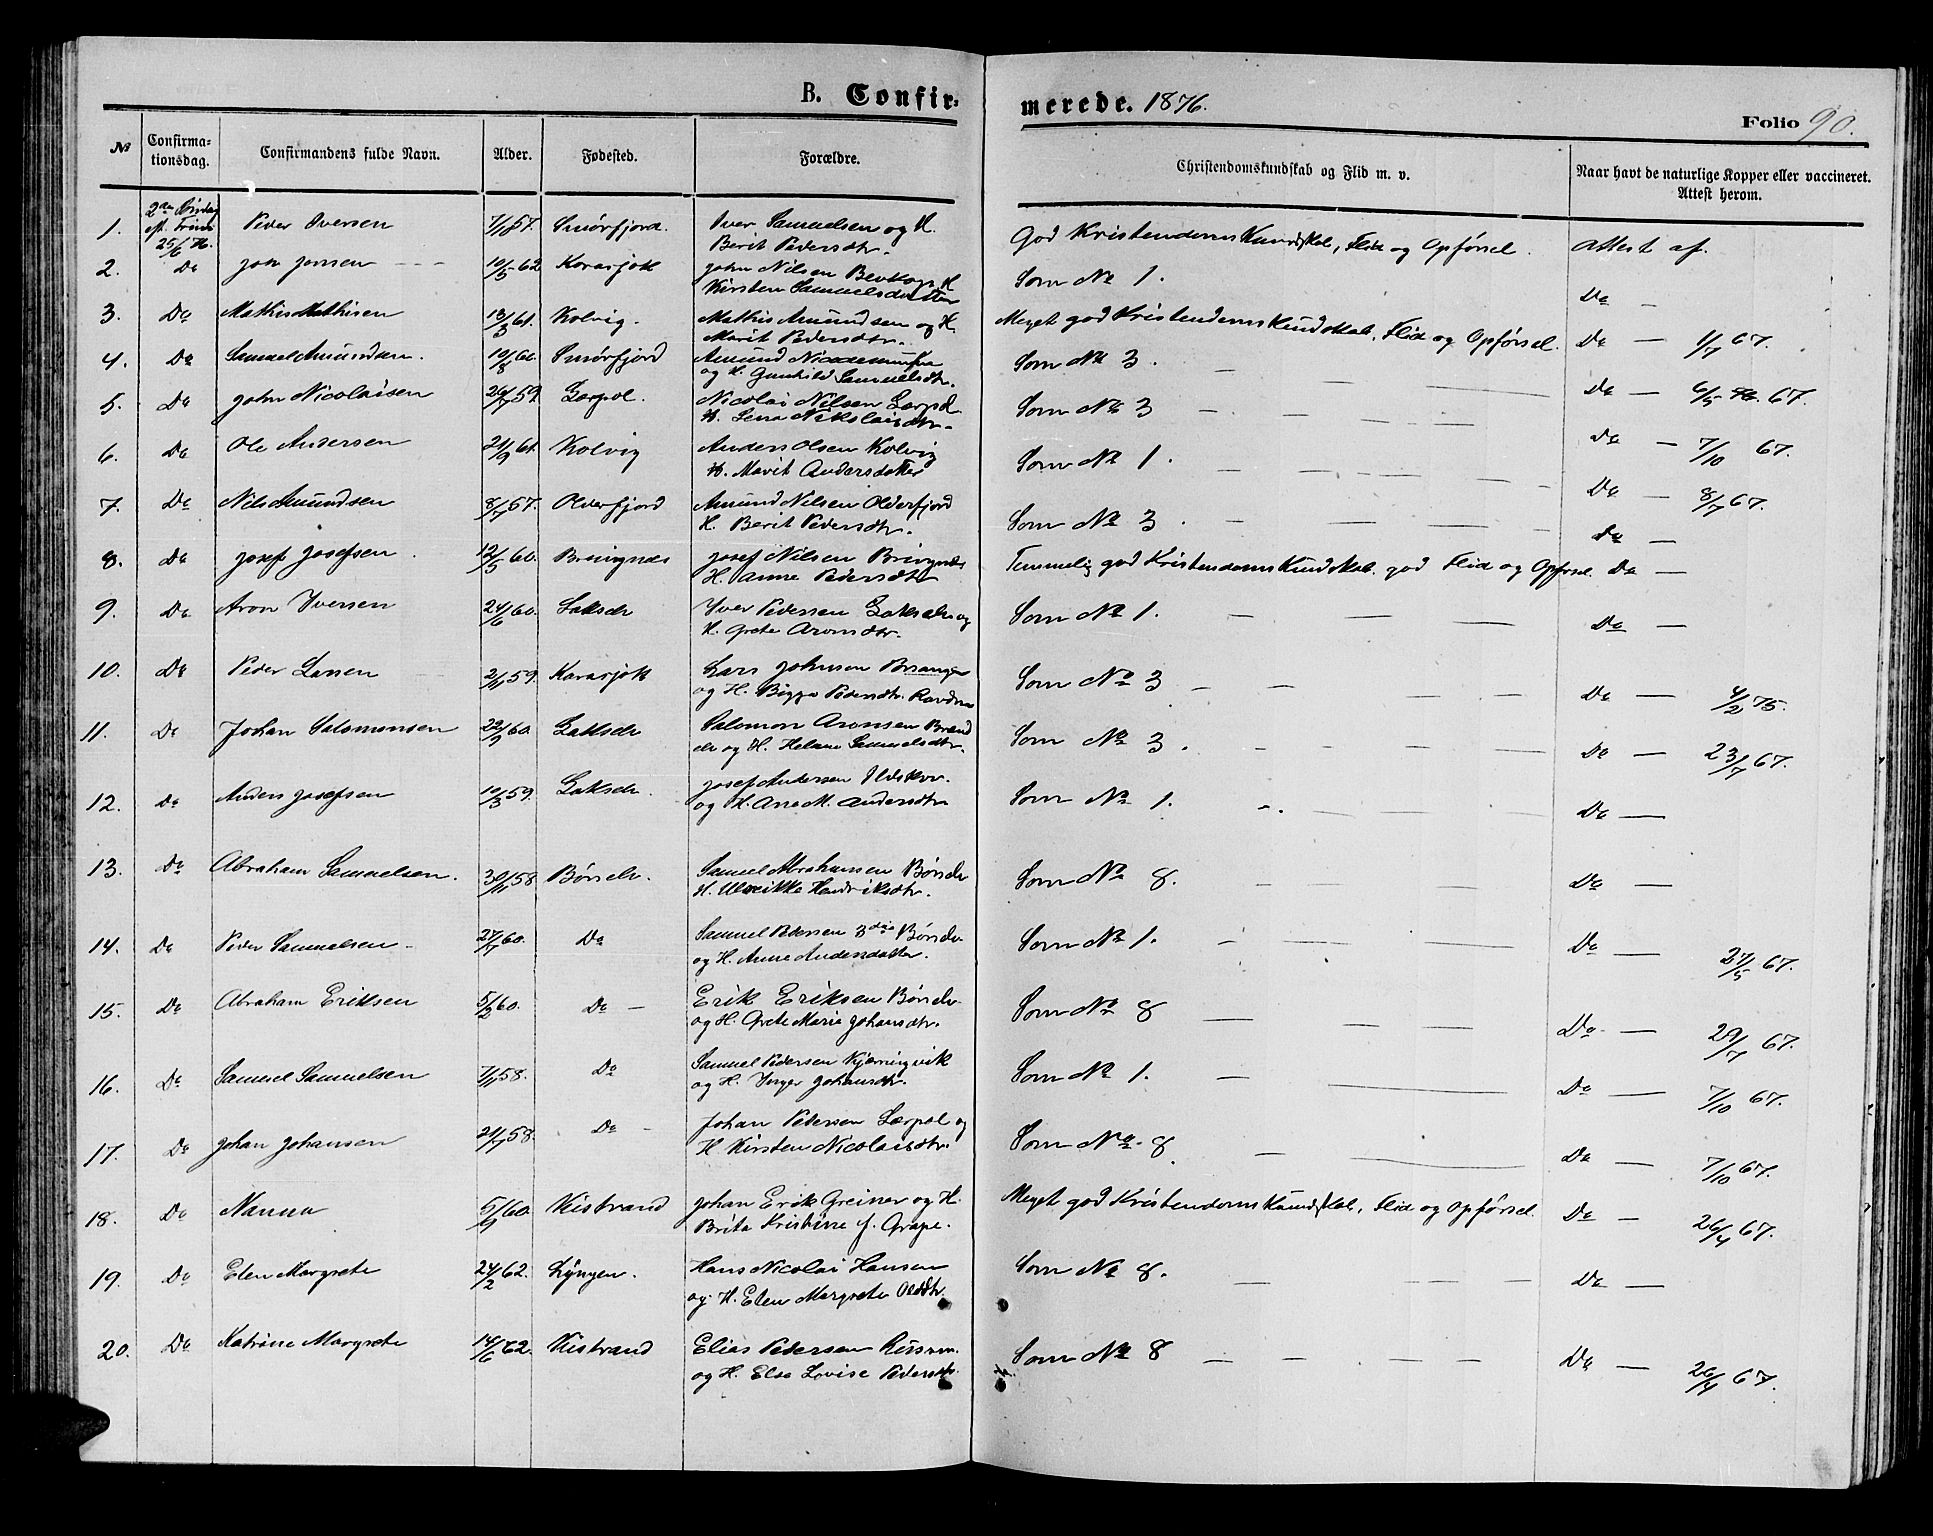 B. Confirmerede. 1876.
Folio 90.
№ Confirmationsdag. Confirmandens fulde Navn. Alder. Fødested. Forældre. Christendomskundskab og Flid m. v. Naar havt de naturlige Kopper eller vaccineret. Attest herom.
1. 25/6 Peder Iversen 57. Smørfjord. Iver Samuelsen og H. God Kristendoms Kundskab, Flid og Opførsel. Attest af.
Berit Pedersdtr.
2. Do Jon Jonsen 10/5 62 Karasjok John Nilsen og H. Som No 1. Do —
Kirsten Samuelsdatter
3. Do Mathis Mathisen 13/3 61. Kolvig. Mathis Amundsen og H. Meget god Kristendoms Kundskab, Flid og Opførsel. Do — 1/7 67.
Marit Pedersdtr.
4. Do Samuel Amundsen. 10/8 60 Smørfjord Amund Som No 3. Do — 6/5 67.
og H. Gunhild Samuelsdtr.
5. Do John Nicolaisen 59. Lærpol. Nicolai Nilsen Lærpol. Som No 3 Do — 7/10 67.
H. Lena Nikolaisdtr.
6. Do Ole Andersen 21/9 61. Kolvig Anders Olsen Kolvig Som No 1. Do — 8/7 67.
H. Marit Andersdatter
7. Do Nils Amundsen 8/7 57. Olderfjord Amund Nilsen Olderfjord Som No 3. Do —
H. Berit Pedersdtr.
8. Do Josef Josefsen 12/5 60. Brevignæs Josef Nilsen Temmelig god Kristendoms Kundskab. god Flid og Opførsel. Do —
H. Anne Pedersdtr
9. Do Aron Iversen 24/6 60. Lakselv Iver Pedersen Lakselv og Som No 1. Do —
H. Grete Aronsdtr.
10. Do Peder Larsen 2/11 59. Karasjok Lars Johnsen Som No 3 Do — 4/2 75.
og H. Bigga Pedersdtr.
11. Do Johan Salomonsen 22/9 60. Lakselv Salomon Aronsen Brand Som No 3. Do — 23/7 67.
elv og H. Helene Samuelsdtr.
12. Do Anders Josefsen 10/3 59. Lakselv. Josef Andersen Som No 1. Do —
og H. Ane M. Andersdtr
13. Do Abraham Samuelsen. 30/11 58 Børselv. Samuel Abrahamsen Børselv Som No 8. Do —
H. Ulrikke Hendriksdtr.
14. Do Peder Samuelsen 27/7 60. Do Samuel Petersen 3die Børselv Som No 1. Do — 27/5 67.
og H. Anne Andersdatter.
15. Do Abraham Eriksen 5/2 60. Do — Erik Eriksen Børselv Som No 8 Do — 29/7 67.
og H. Grete Marie Johansdtr.
16. Do Samuel Samuelsen 7/11 58. Do Samuel Pedersen Kjæringvik Som No 1. Do — 7/10 67.
og H. Inger Johansdtr.
17. Do Johan Johansen 21/7 58. Do — Johan Pedersen Lærpol og Som No 8 Do — 7/10 67.
H Kirsten Nicolaisdtr.
18. Do Nanna 60. Kistrand Johan Erik Greiner og H. Meget god Kristendoms Kundskab, Flid og Opførsel. Do — 26/4 67.
Brita Kristine f. Grape.
19. Do Elen Margrete 24/2 62. Lyngen. Hans Nicolai Hansen Som No 8. Do —
og H. Elen Margrete
20. Do Katrine Margrete 14/6 62. Kistrand Elias Pedersen Som No 8 Do — 26/4 67.
og H. Else Lovise Pedersdtr.